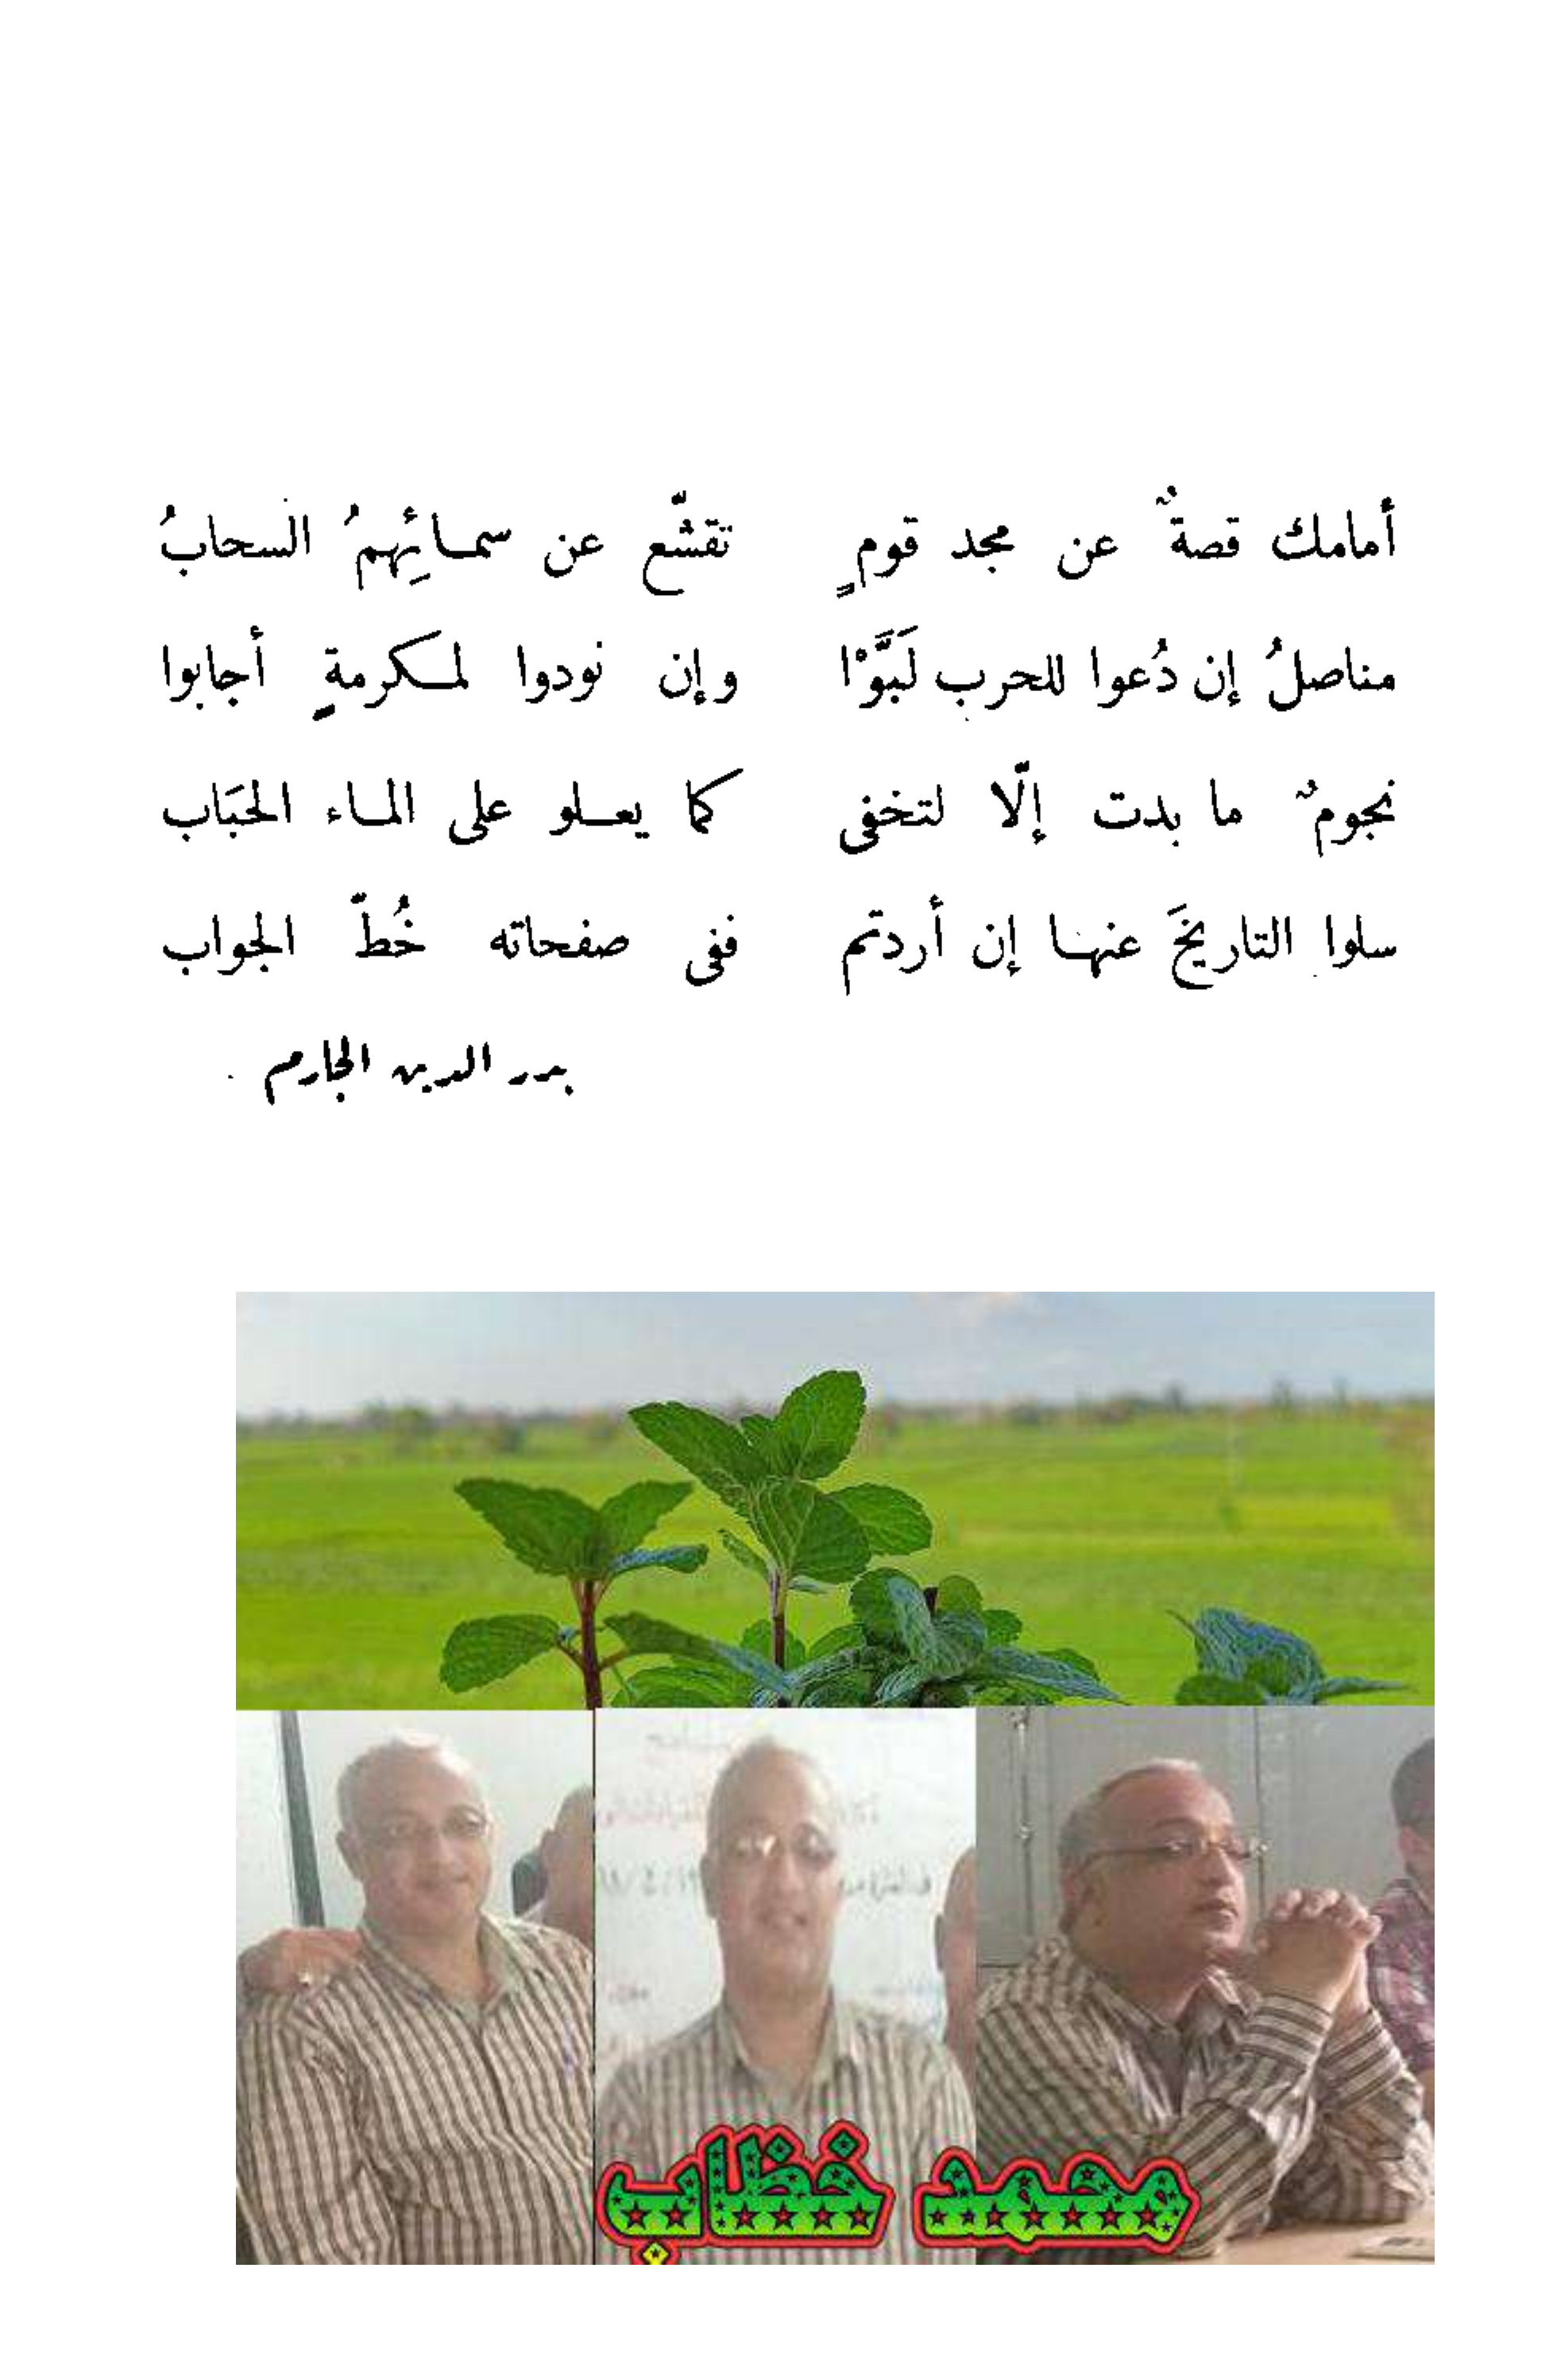 أمامك قصةٌ عن مجد قومٍ تقشّع عن سمائِهمُ السحابُ
مناصلُ إن دُعوا للحرب لَبَّوْا وإن نودوا لمكرمةٍ أجابوا
نجومٌ ما بدت إلّا لتخفى كما يعلو على الماء الحبَاب
سلوا التاريخَ عنها إن أردتم ففى صفحاته خُطّ الجواب
بدر الدين الجارم
محمد خظاب